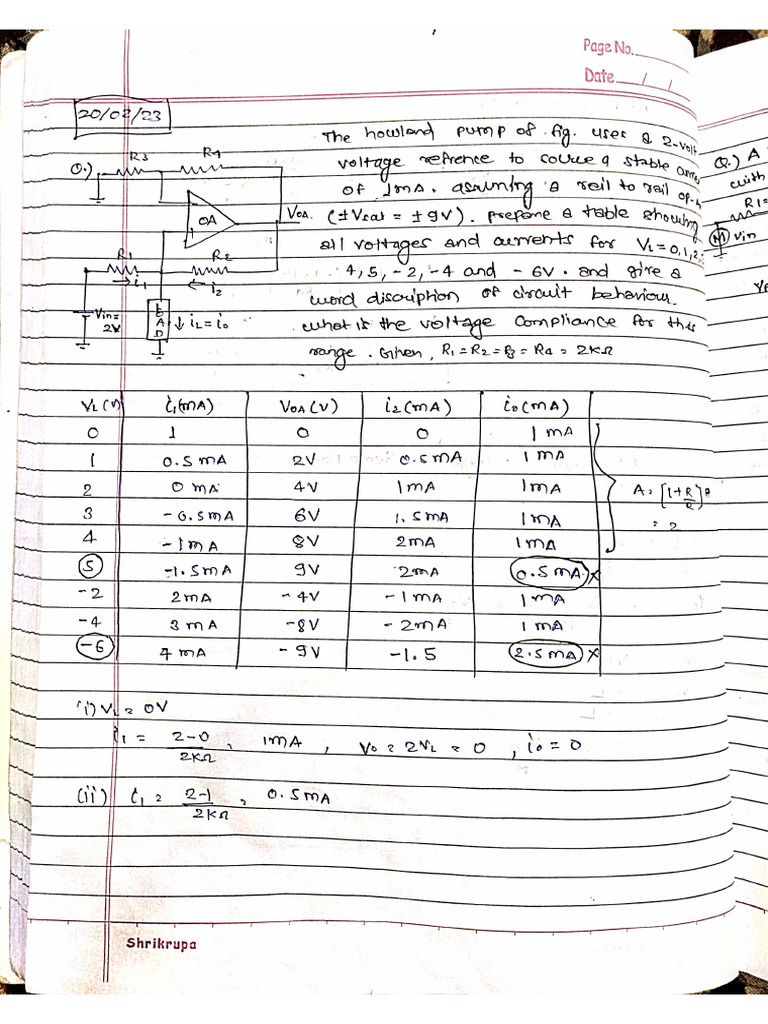 Page No.
Date / /
20/02/23
The howland pump of fig. uses a 2-volt
Q.)
R3
R4
voltage refrence to source a stable
of 1mA. assuming a reil to rail op-
OA
VOA
(±Vsat = ±9V). prepare a table showing
R1
R2
all voltages and currents for VL = 0, 1, 2,
i1
i2
4, 5, -2, -4 and -6V. and give a
Vin =
2V
LOAD
↓ iL = io
word discription of circuit behaviour.
what is the voltage compliance for this
range. Given, R1 = R2 = R3 = R4 = 2KΩ
VL (V) i1(mA) VOA (V) i2 (mA) io (mA)
0 1 0 0 1 mA
1 0.5 mA 2V 0.5mA 1 mA
2 0 mA 4V 1mA 1mA
3 -0.5mA 6V 1.5mA 1mA
4 -1mA 8V 2mA 1mA
5 -1.5mA 9V 2mA 0.5mA x
-2 2mA -4V -1mA 1mA
-4 3 mA -8V -2mA 1mA
-6 4 mA -9V -1.5 2.5mA x
A = [1+R/R]
= 2
(i) VL = 0V
i1 = 2-0 / 2KΩ = 1mA , Vo = 2VL = 0 , io = 0
(ii) i1 = 2-1 / 2KΩ = 0.5mA
Shrikrupa
Q.) A
with
R1=
Vin